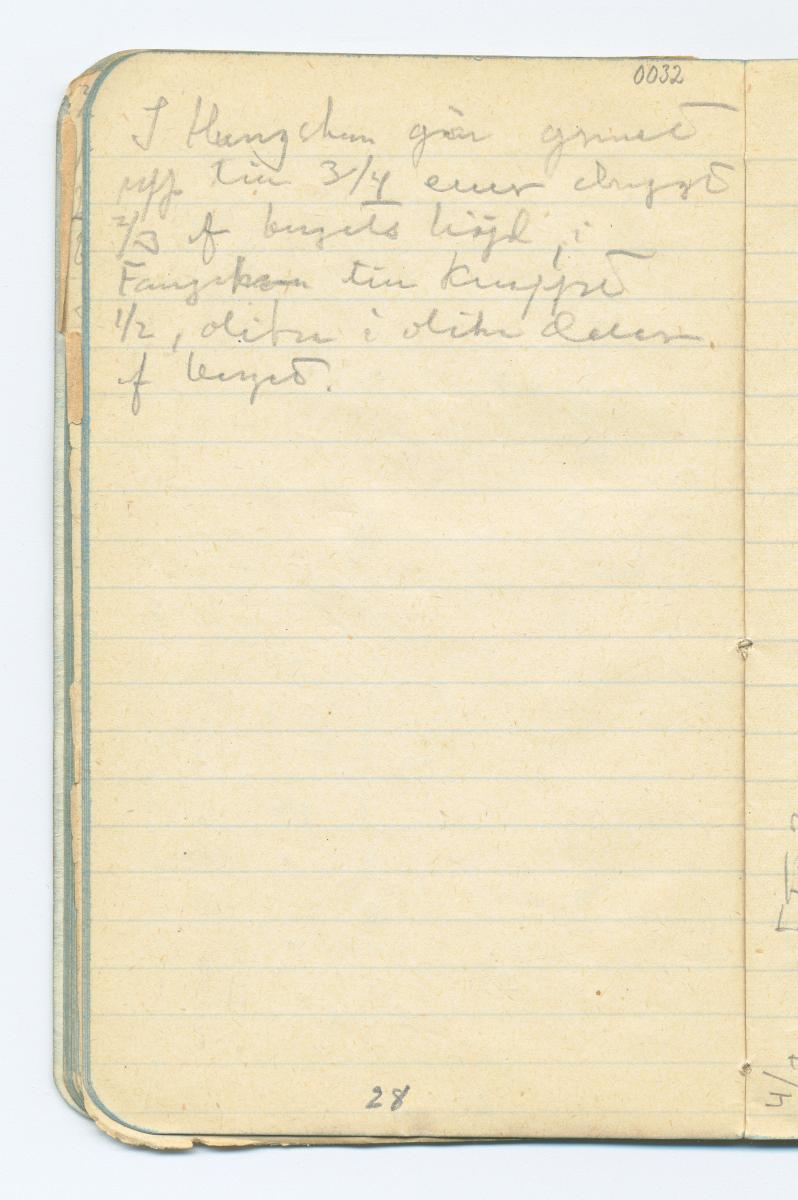 0032
I Hengshan går gruset
upp till 3/4 eller drygt
2/3 af bergets höjd, i
Fangshan till knappt
1/2, olika i olika delar
af berget.
28